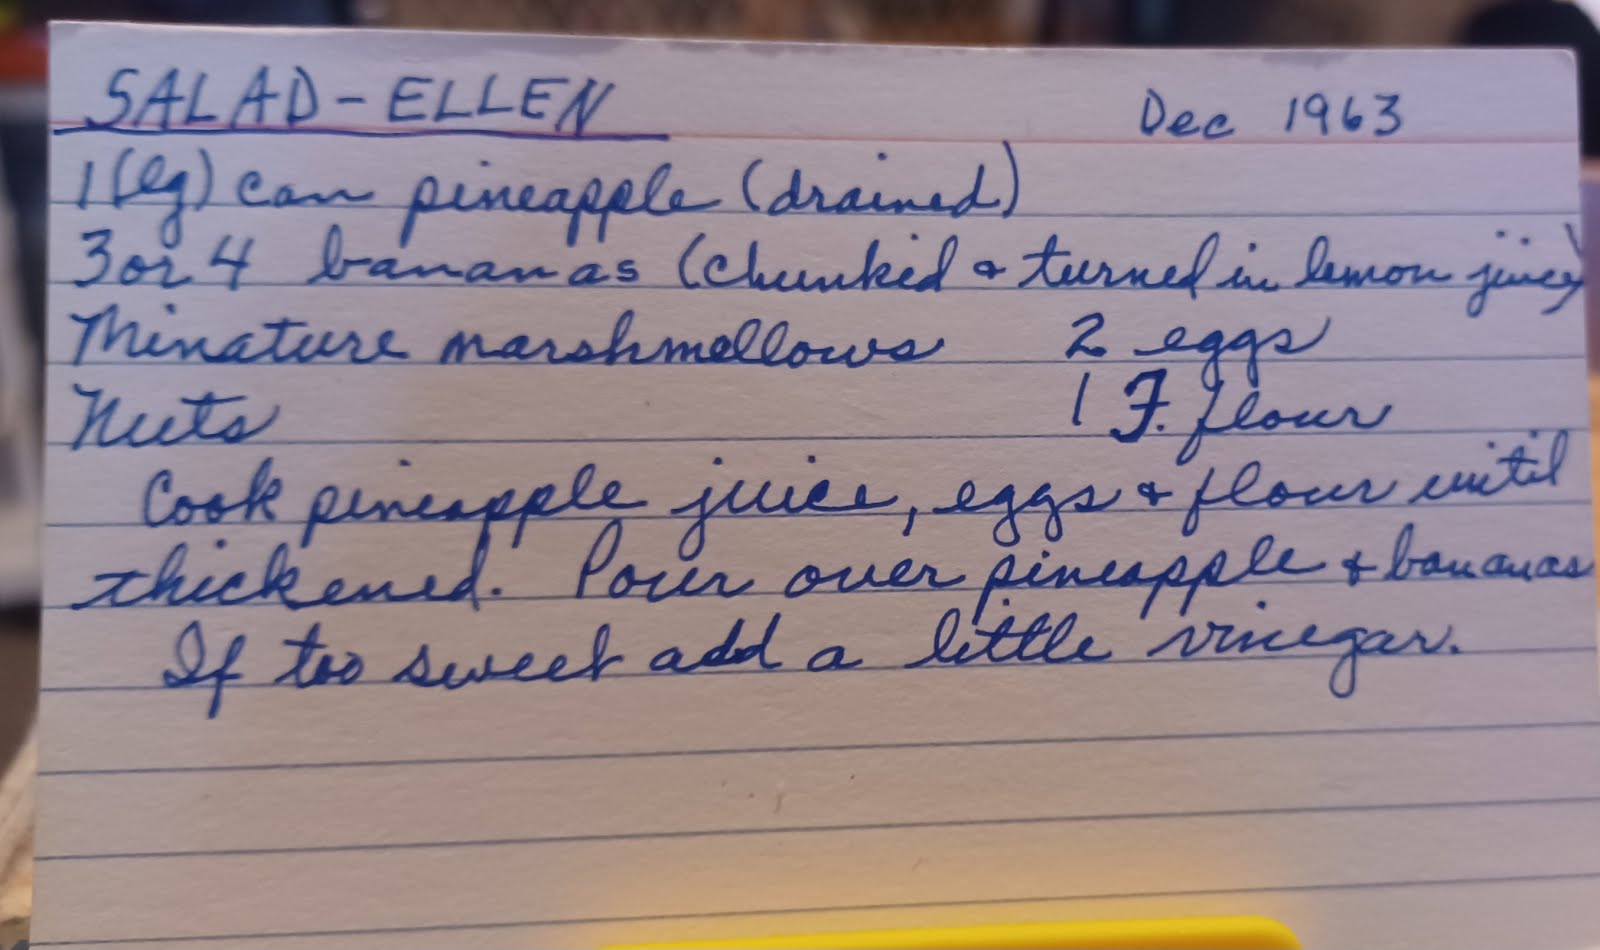 SALAD - ELLEN Dec 1963
1 (lg) can pineapple (drained)
3 or 4 bananas (chunked & turned in lemon juice)
Minature marshmellows 2 eggs
Nuts 1 T. flour
Cook pineapple juice, eggs & flour until
thickened. Pour over pineapple & bananas
If too sweet add a little vinegar.